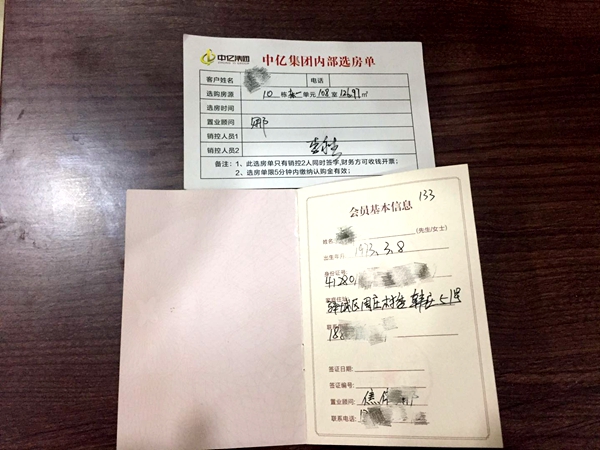 中亿集团
中亿集团内部选房单
客户姓名 电话
选购房源 10 栋 一 单元 108 室 126.97 ㎡
选房时间
置业顾问 娜
销控人员1
销控人员2
备注：1、此选房单只有销控2人同时签字,财务方可收钱开票；
2、选房单限5分钟内缴纳认购金有效；
会员基本信息 133
姓名 (先生/女士)
出生年月 1973.3.8
身份证号: 41280
驿城区周庄村
签证日期:
签证编号:
置业顾问: 焦
联系电话: